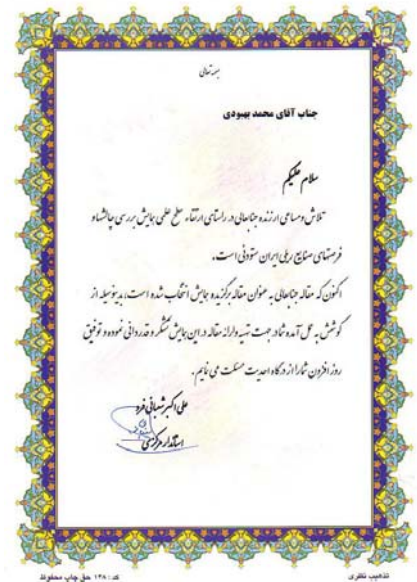 بسمه تعالی
جناب آقای محمد بهبودی
سلام علیکم
تلاش و مساعی ارزنده جنابعالی در راستای ارتقاء سطح علمی همایش بررسی چالشها و
فرصتهای صنایع ریلی ایران ستودنی است.
اکنون که مقاله جنابعالی به عنوان مقاله برگزیده همایش انتخاب شده است، بدینوسیله از
کوشش به عمل آمده شما در جهت تهیه و ارائه مقاله در این همایش تشکر و قدردانی نموده و توفیق
روز افزون شما را از درگاه احدیت مسئلت می نمایم.
علی اکبر شعبانی فرد
استاندار مرکزی
تذهیب نظری
کد: ۱۲۸ حق چاپ محفوظ